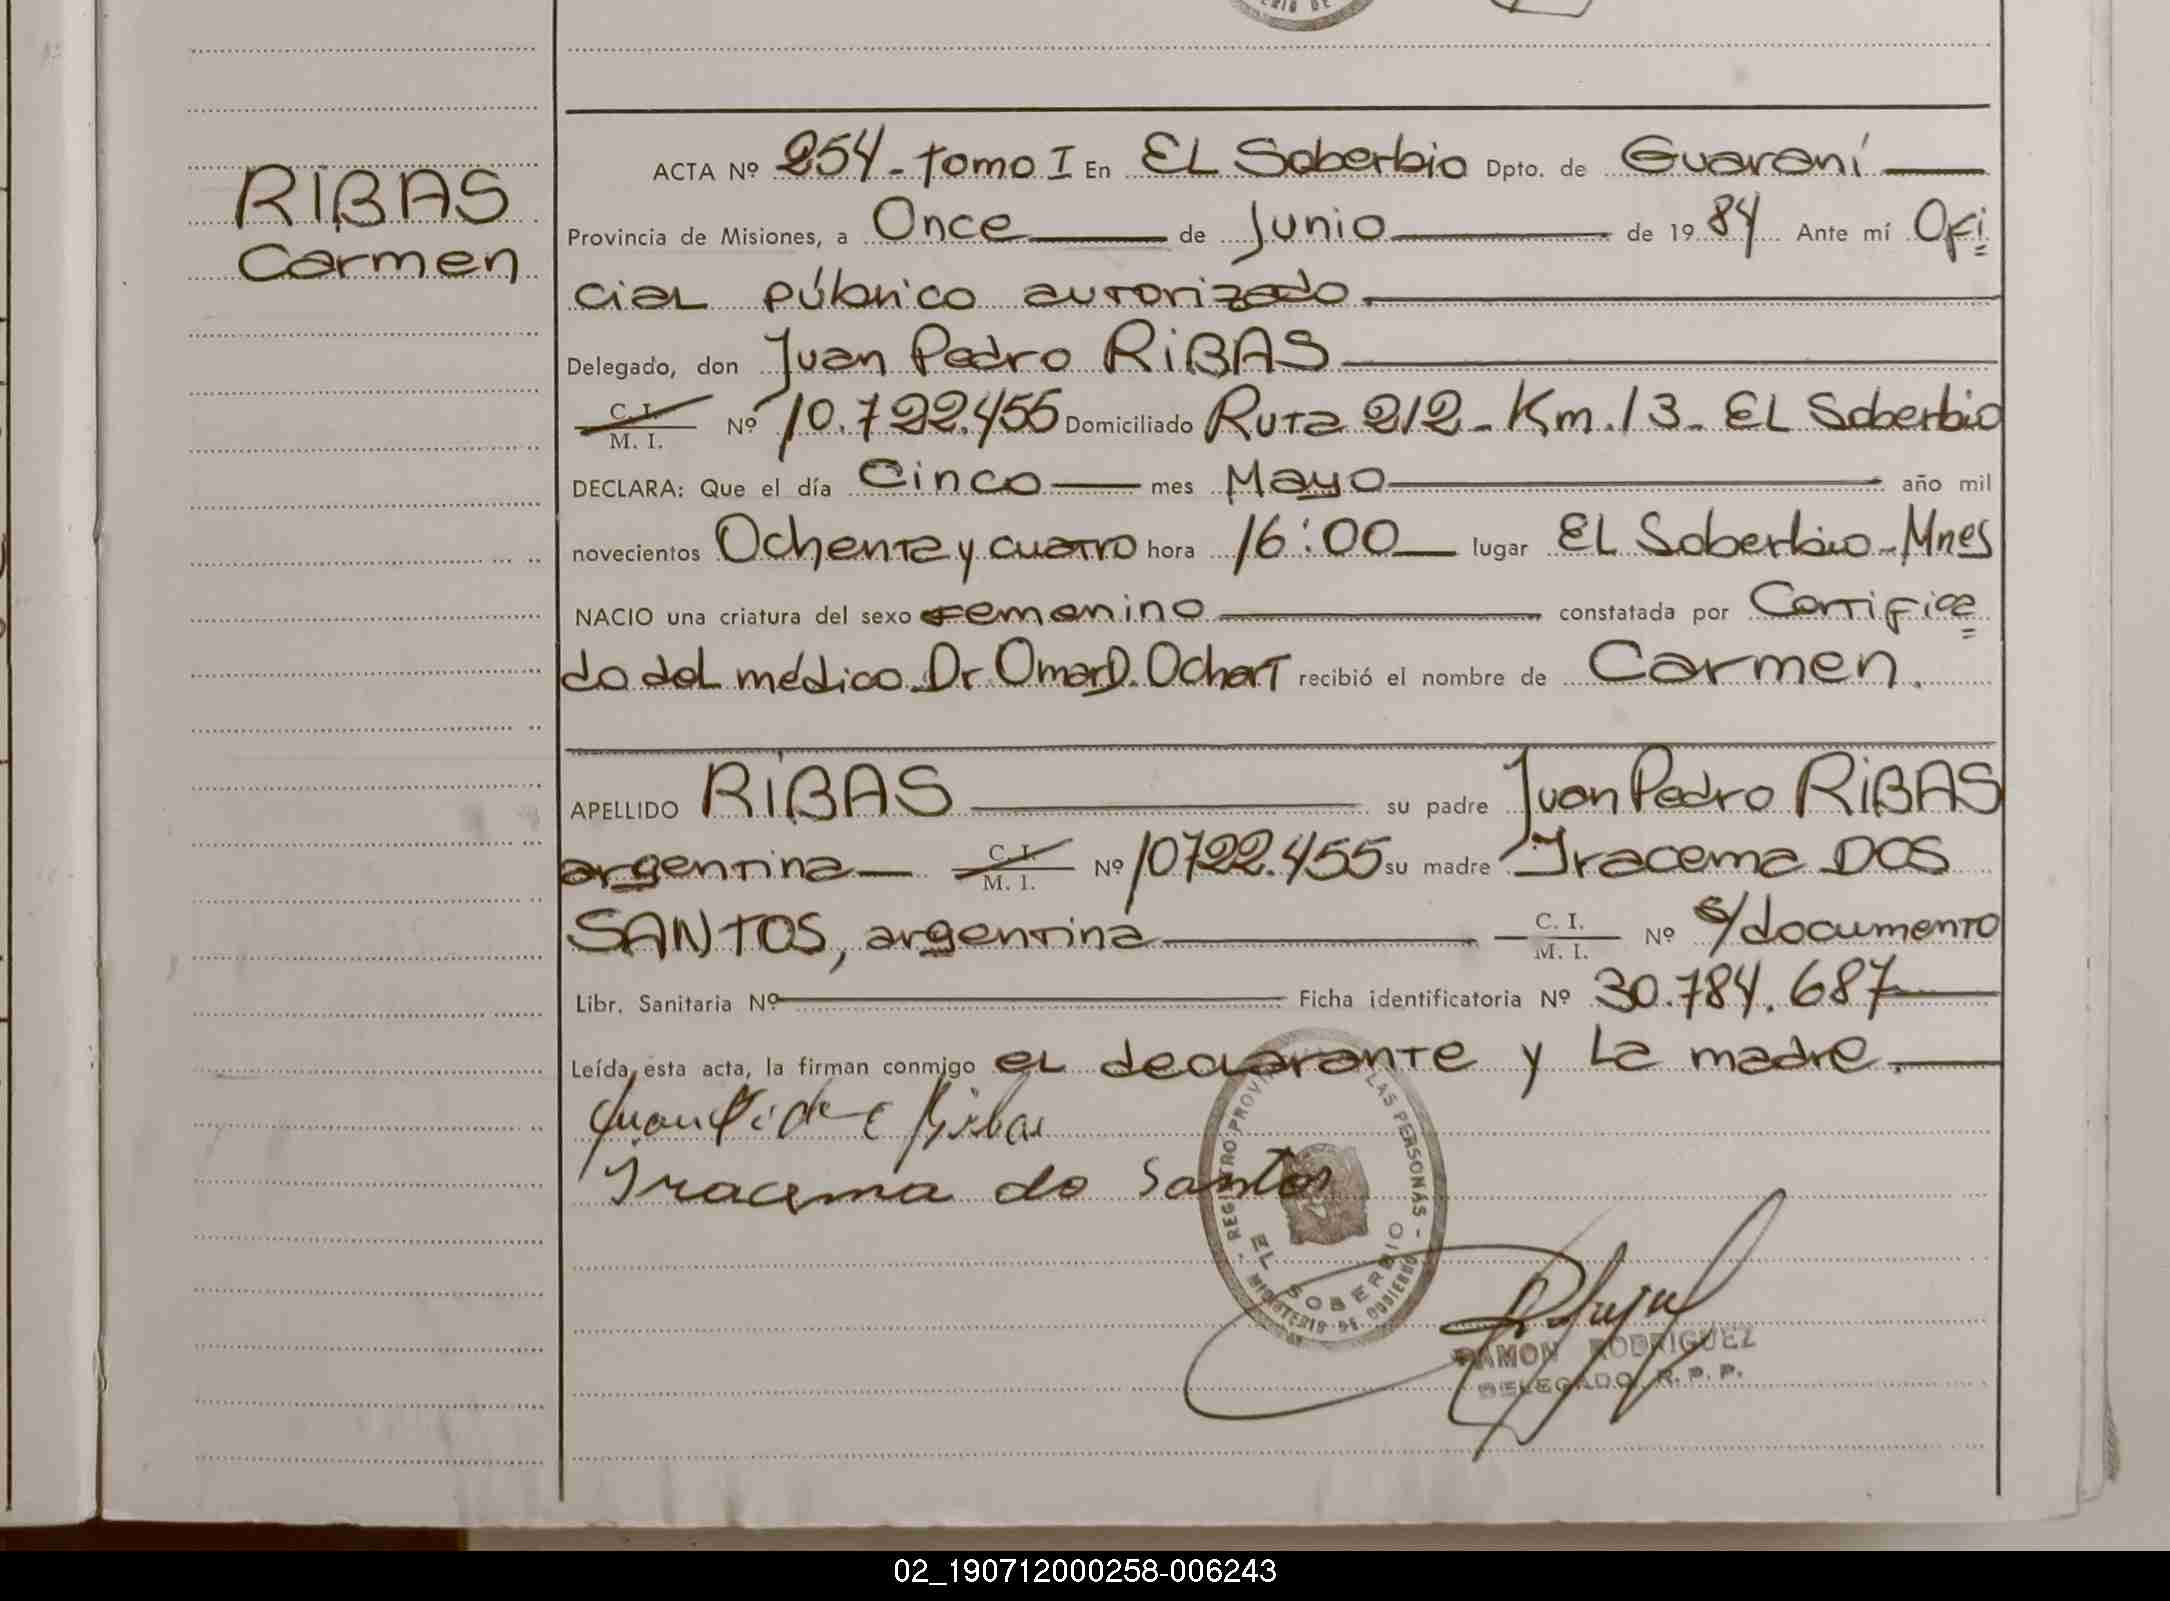 RIBAS
Carmen
ACTA Nº 254 - Tomo I En EL Soberbio Dpto. de Guaraní
Provincia de Misiones, a Once de Junio de 1984 Ante mí Ofi
cial público autorizado.
Delegado, don Juan Pedro RIBAS
C. I. M. I. Nº 10.722.455 Domiciliado Ruta 212 - Km. 13 - EL Soberbio
DECLARA: Que el día Cinco mes Mayo año mil
novecientos Ochenta y cuatro hora 16:00 lugar EL Soberbio - Mnes
NACIO una criatura del sexo femenino constatada por Certifica
do del médico Dr Omar D. Ochart recibió el nombre de Carmen.
APELLIDO RIBAS su padre Juan Pedro RIBAS
argentina C. I. M. I. Nº 10722.455 su madre Iracema DOS
SANTOS, argentina C. I. M. I. Nº s/documento
Libr. Sanitaria Nº Ficha identificatoria Nº 30.784.687
Leída esta acta, la firman conmigo el declarante y la madre.
Iracema do Santos
EL SOBERBIO
MINISTERIO DE GOBIERNO
RAMON RODRIGUEZ
DELEGADO R. P. P.
02_190712000258-006243